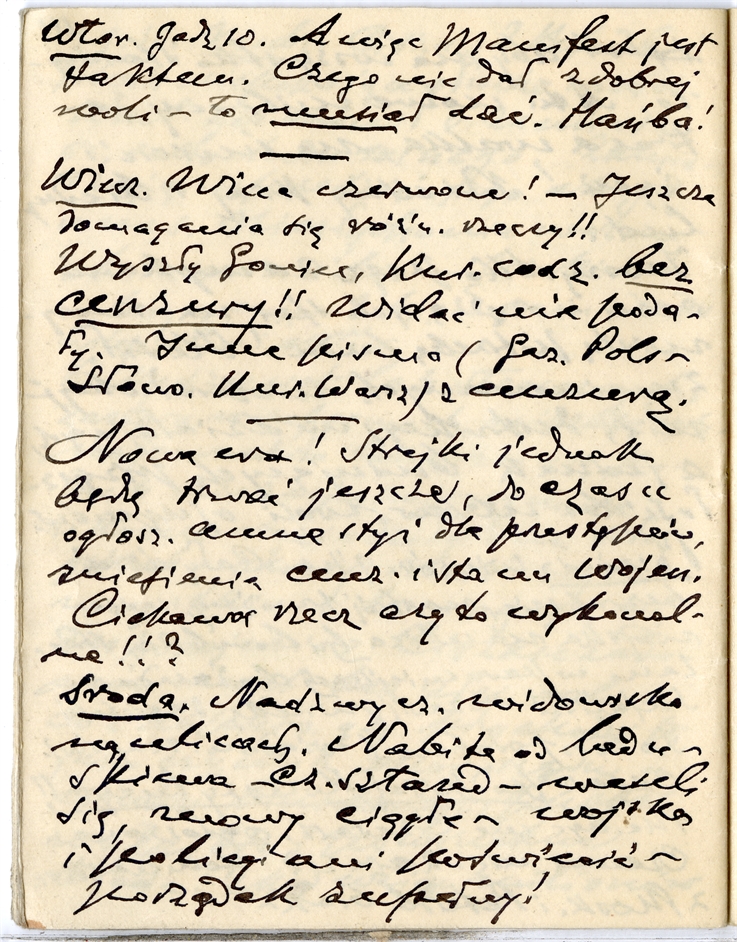 Wtor. godz 10. A więc Manifest jest
faktem. Czego nie dał z dobrej
woli – to musiał dać. Hańba!
Wiecz. Wiece czerwone! – Jeszcze
domagania się różn. rzeczy!!
Wyszły Goniec, Kur. codz. bez
cenzury!! Widać nie poda-
ły. Inne pisma (Gaz. Pols-
Słowo. Kur. Warz) z cenzurą.
Nowa era! Strejki jednak
będą trwać jeszcze, do czasu
ogłosz. amnestyi dla przestępców,
zniesienia cenz. i stanu wojen.
Ciekawa rzecz czy to wykonal-
ne!!?
Środa. Nadzwycz. widowisko
na ulicach. Nabite od ludu –
Skiewa cz. sztand – weseli
się, mowy ciągłe – wojska
i policyi ani
porządek zupełny!